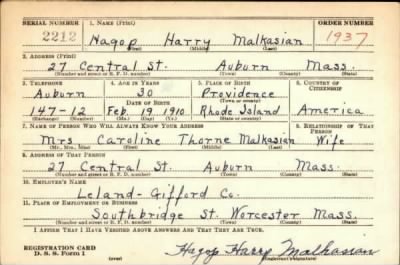 SERIAL NUMBER 1. NAME (Print) ORDER NUMBER
2212 Hagop Harry Malkasian 1937
(First) (Middle) (Last)
2. ADDRESS (Print)
27 Central St. Auburn Mass.
(Number and street or R. F. D. number) (Town) (County) (State)
3. TELEPHONE 4. AGE IN YEARS 5. PLACE OF BIRTH 6. COUNTRY OF CITIZENSHIP
Auburn 30 Providence
DATE OF BIRTH (Town or county)
147-12 Feb 19 1910 Rhode Island America
(Exchange) (Number) (Mo.) (Day) (Yr.) (State or country)
7. NAME OF PERSON WHO WILL ALWAYS KNOW YOUR ADDRESS 8. RELATIONSHIP OF THAT PERSON
Mrs Caroline Thorne Malkasian Wife
(Mr., Mrs., Miss) (First) (Middle) (Last)
9. ADDRESS OF THAT PERSON
27 Central St. Auburn Mass.
(Number and street or R. F. D. number) (Town) (County) (State)
10. EMPLOYER'S NAME
Leland-Gifford Co.
11. PLACE OF EMPLOYMENT OR BUSINESS
Southbridge St. Worcester Mass.
(Number and street or R. F. D. number) (Town) (County) (State)
I AFFIRM THAT I HAVE VERIFIED ABOVE ANSWERS AND THAT THEY ARE TRUE.
REGISTRATION CARD
D. S. S. Form 1 (over) Hagop Harry Malkasian
(Registrant's signature)